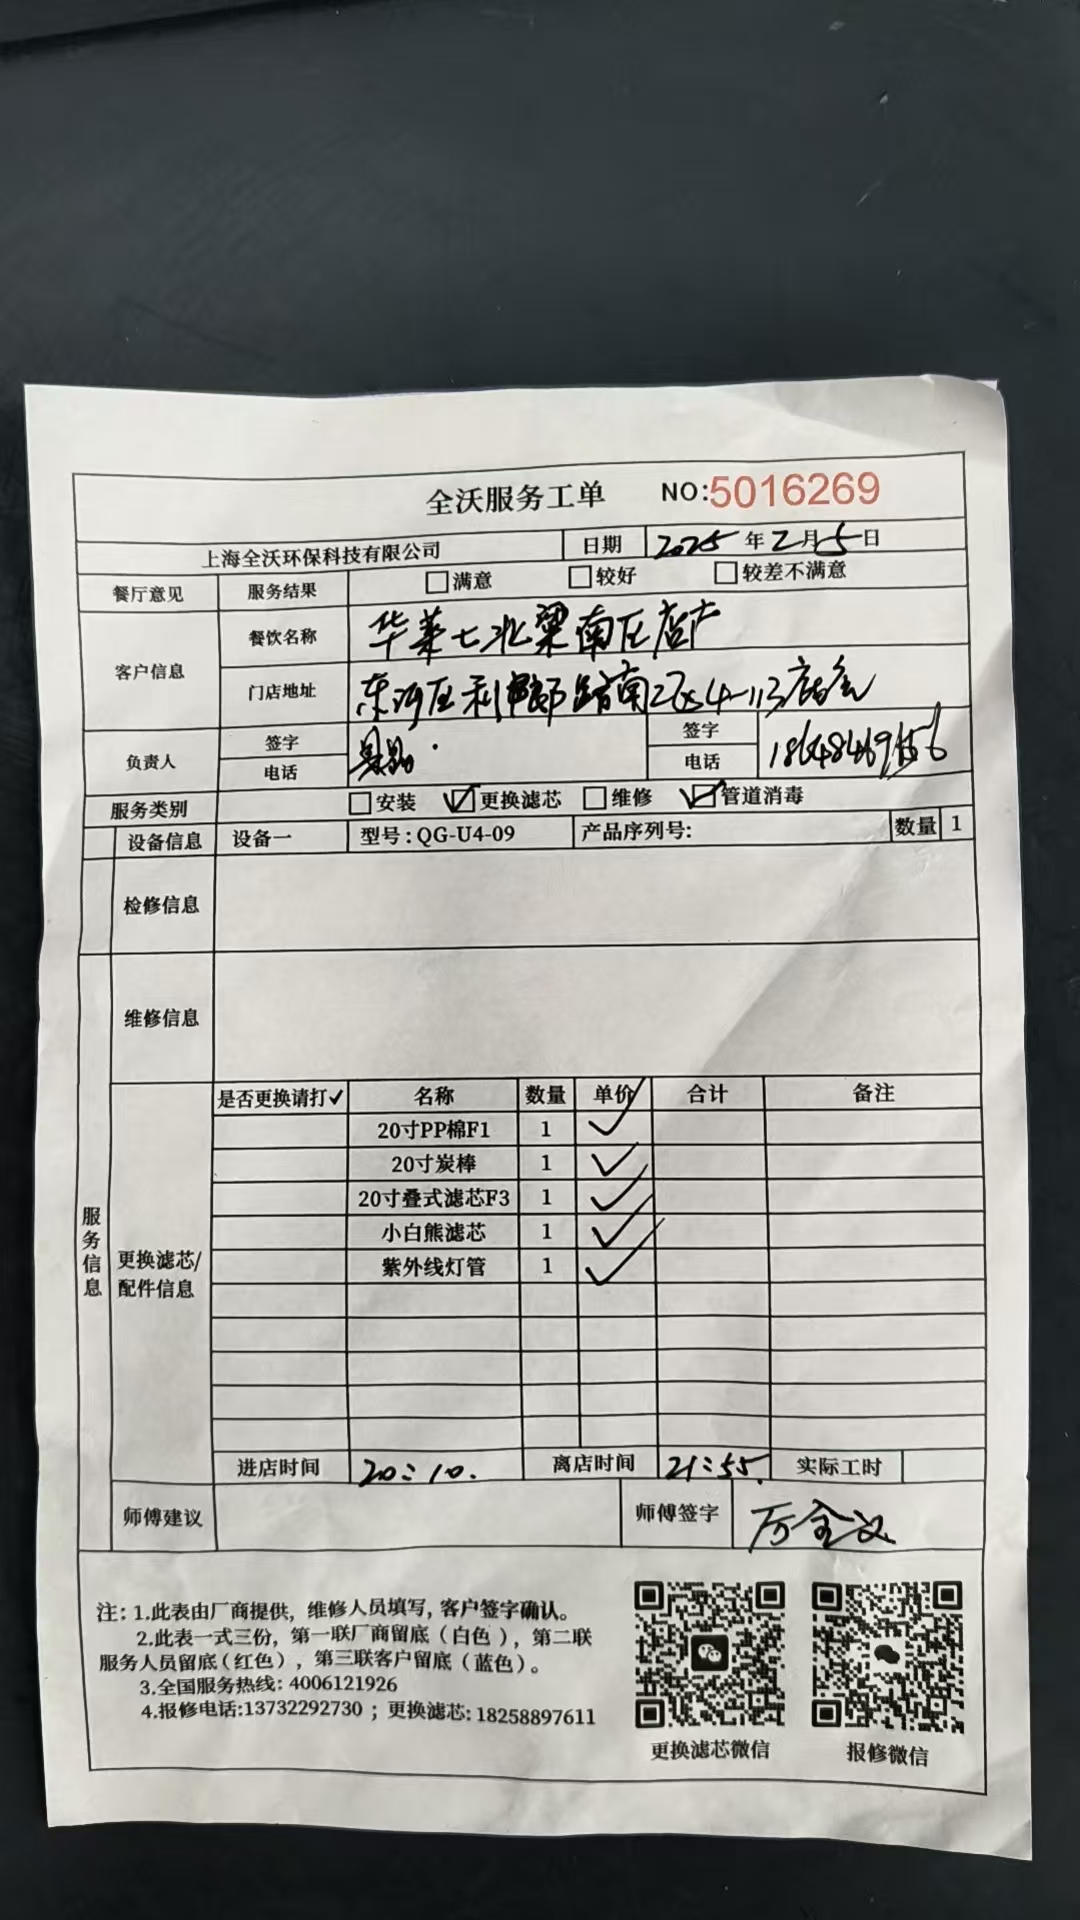 全沃服务工单 NO:5016269
上海全沃环保科技有限公司 日期 2025年2月5日
餐厅意见 服务结果 满意 较好 较差不满意
客户信息 餐饮名称 华莱士北梁南区店
门店地址 东河区利 路南 4-113底店
负责人 签字 签字
电话 电话
服务类别 安装 ☑更换滤芯 维修 ☑管道消毒
设备信息 设备一 型号:QG-U4-09 产品序列号: 数量 1
检修信息
维修信息
服务信息
更换滤芯/配件信息
是否更换请打✓ 名称 数量 单价 合计 备注
20寸PP棉F1 1 ✓
20寸炭棒 1 ✓
20寸叠式滤芯F3 1 ✓
小白熊滤芯 1 ✓
紫外线灯管 1 ✓
进店时间 20:10. 离店时间 21:55. 实际工时
师傅建议 师傅签字
注：1.此表由厂商提供，维修人员填写，客户签字确认。
2.此表一式三份，第一联厂商留底（白色），第二联
服务人员留底（红色），第三联客户留底（蓝色）。
3.全国服务热线：4006121926
4.报修电话:13732292730；更换滤芯:18258897611
更换滤芯微信 报修微信